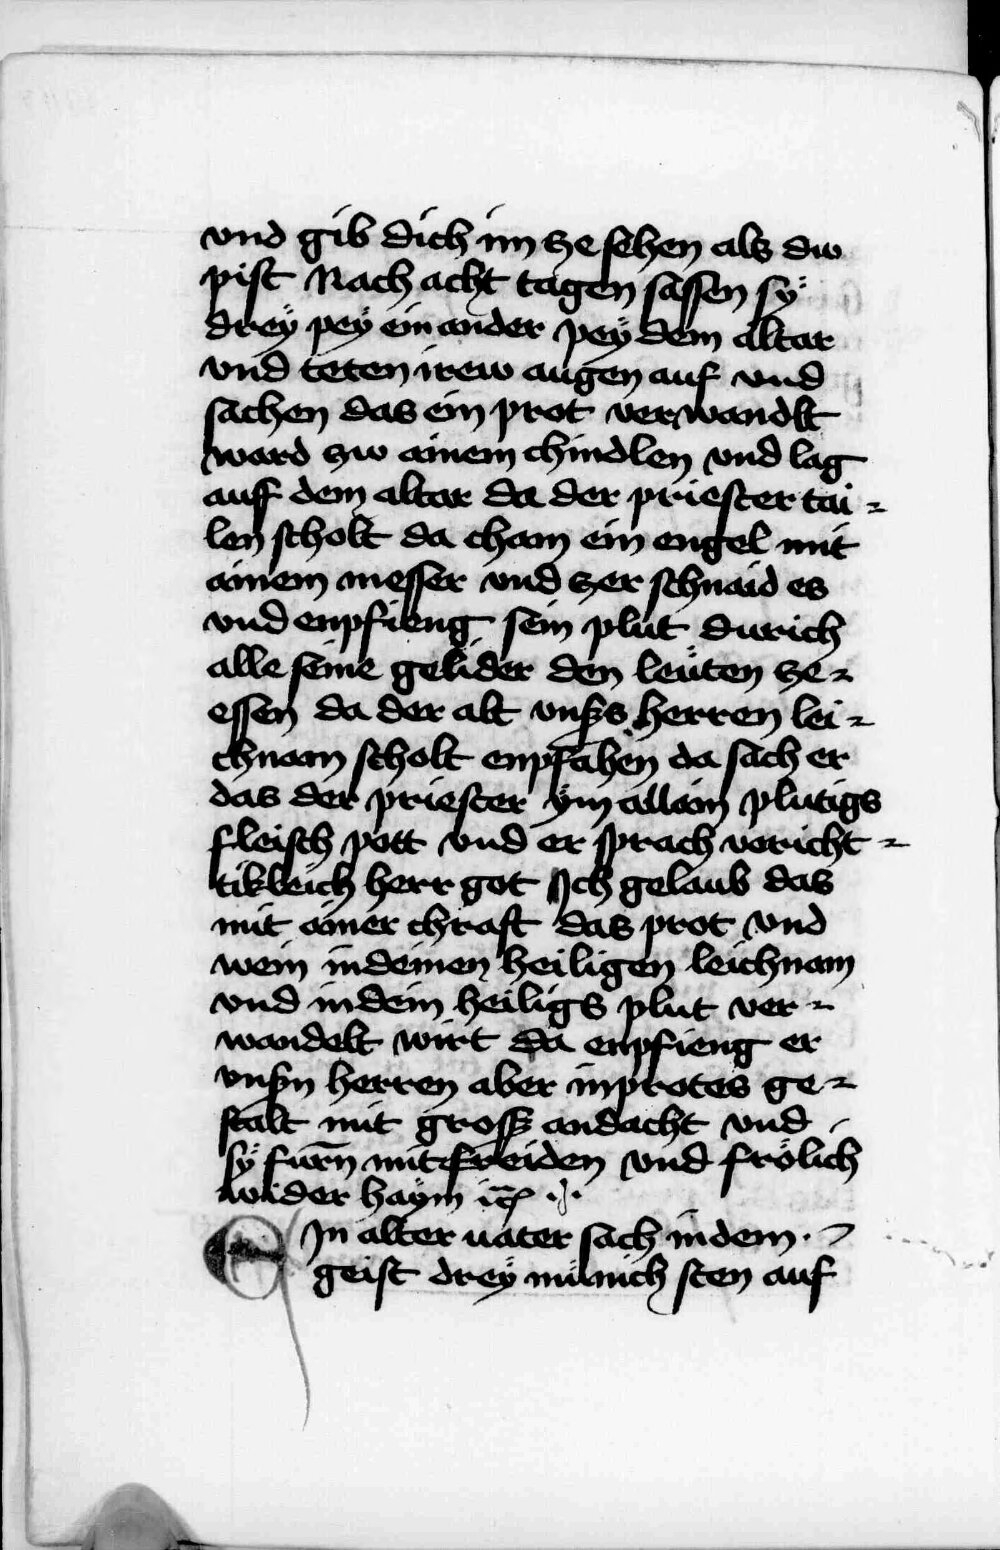 vnd gib dich im ze sehen als dw
pist Nach acht tagen sassen sÿ
dreÿ peÿ ein ander peÿ dem altar
vnd teten irew augen auf vnd
sachen das ein prot verwandlt
ward zw ainem chindlen vnd lag
auff dem altar da der priester tai -
len scholt da cham ein engel mit
ainem messer vnd zer schnaid es
vnd enpfieng sein plut durich
alle seine gelider den leüten ze -
essen da der alt vnßs herren lei -
chnam scholt enpfahen da sach er
das der priester ÿm allain plutigs
fleisch pott vnd er sprach voricht -
tikleich herr got Ich gelaub das
mit ainer chraft das prot vnd
wein in deinen heiligen leichnam
vnd in dein heiligs plut ver -
wandelt wirt da enpfieng er
vnßn herren aber in protes ge -
stalt mit gross andacht vnd
sÿ furñ mit freiden vnd frölich
wider haÿm
EIn alter uater sach in dem
geist dreÿ münich sten auf